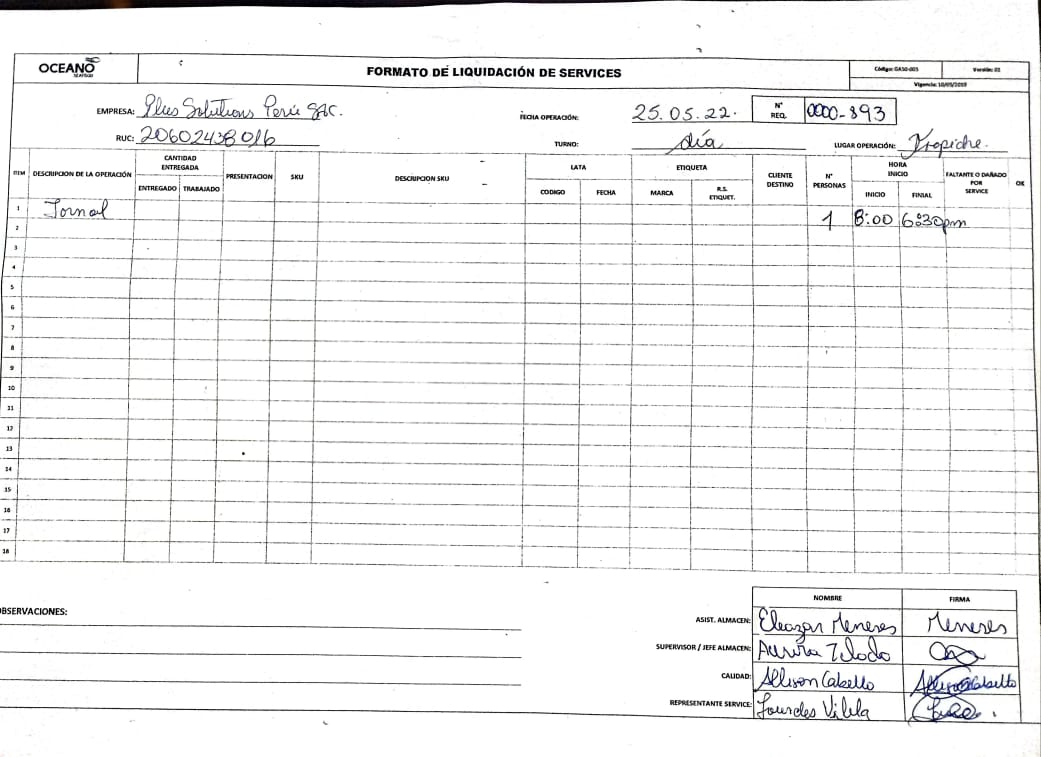 OCEANO
SEAFOOD
FORMATO DE LIQUIDACIÓN DE SERVICES
Código: GASO-005
Versión: 01
Vigencia: 10/05/2019
EMPRESA: Plus Solutions Perú SAC.
FECHA OPERACIÓN: 25.05.22.
N° REQ. 0000-893
RUC: 20602438016
TURNO: día
LUGAR OPERACIÓN: Tropiche.
ITEM
DESCRIPCION DE LA OPERACIÓN
CANTIDAD ENTREGADA
ENTREGADO
TRABAJADO
PRESENTACION
SKU
DESCRIPCION SKU
LATA
CODIGO
FECHA
ETIQUETA
MARCA
R.S. ETIQUET.
CLIENTE DESTINO
N° PERSONAS
HORA INICIO
INICIO
FINIAL
FALTANTE O DAÑADO POR SERVICE
OK
1 Jornal 1 8:00 6:30pm
2
3
4
5
6
7
8
9
10
11
12
13
14
15
16
17
18
OBSERVACIONES:
NOMBRE FIRMA
ASIST. ALMACEN: Eleazar Meneses Meneses
SUPERVISOR / JEFE ALMACEN:
CALIDAD: Allison Cabello Allison Cabello
REPRESENTANTE SERVICE: Lourdes Vilela